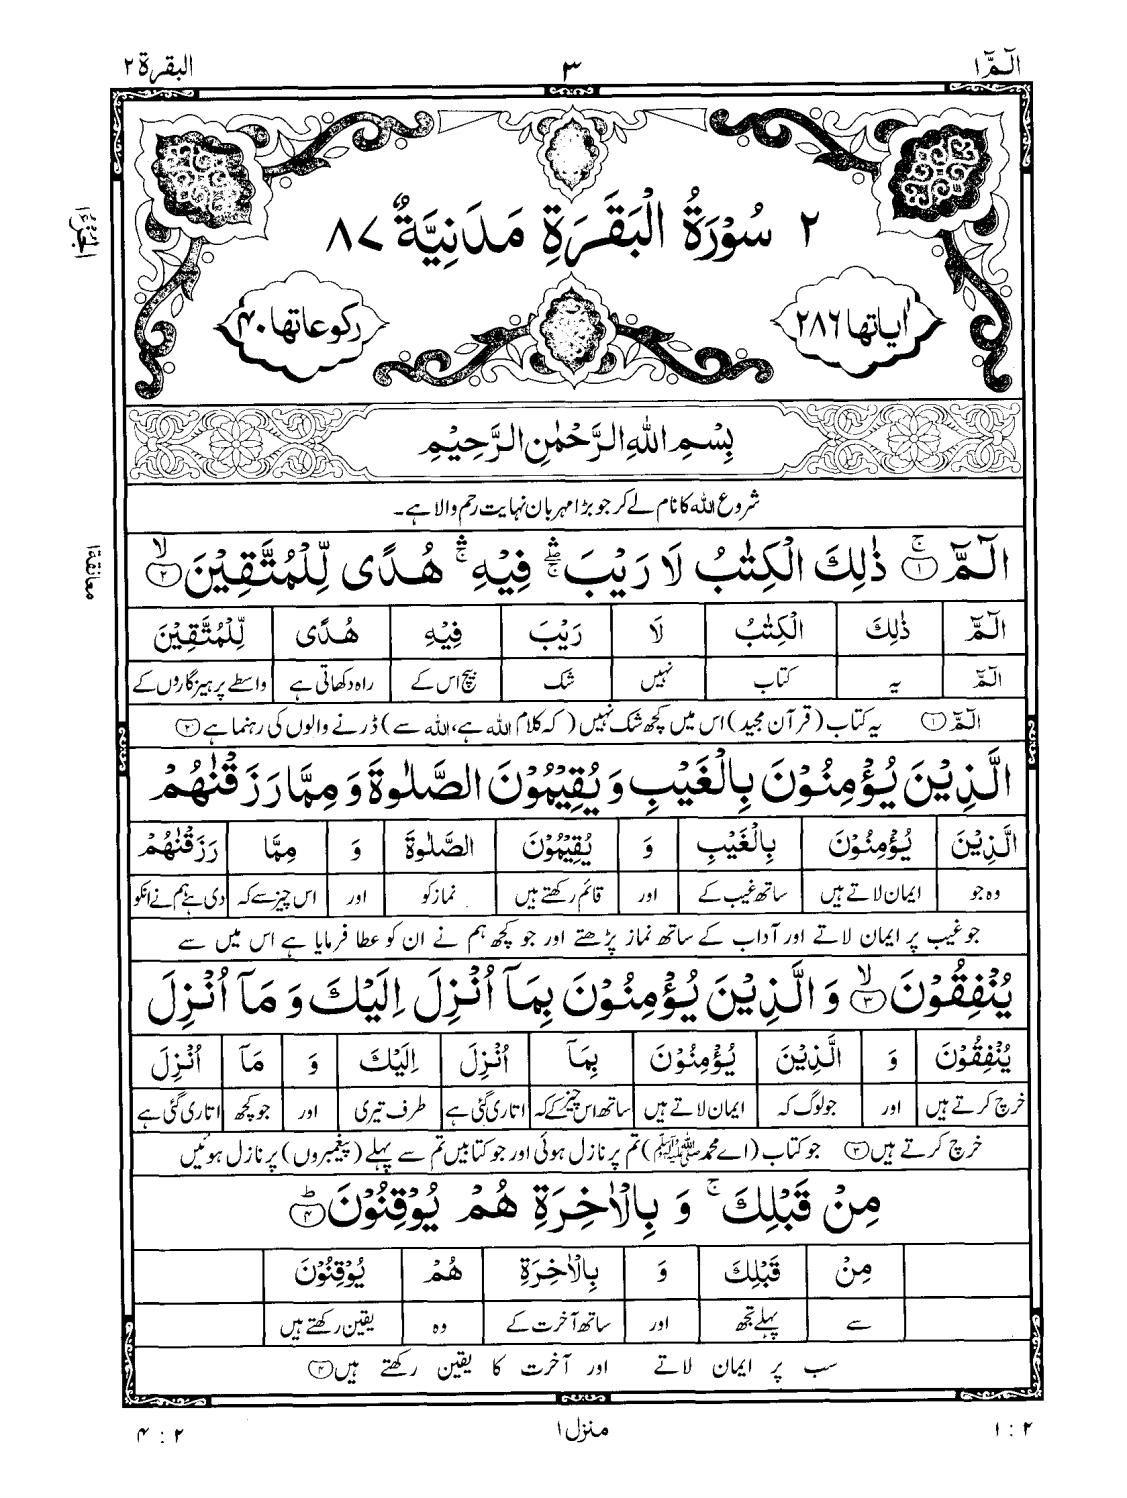 الٓمّٓ ۱
۳
البقرة ۲
۲ سُوْرَةُ الْبَقَرَةِ مَدَنِيَّةٌ ۸۷
اٰیاتها ۲۸۶
رکوعاتها ۴۰
الجزء ۱
بِسْمِ اللّٰهِ الرَّحْمٰنِ الرَّحِيْمِ
شروع اللہ کا نام لے کر جو بڑا مہربان نہایت رحم والا ہے۔
معانقة ۱
الٓمّٓ ۚ﴿۱﴾ ذٰلِكَ الْكِتٰبُ لَا رَيْبَ ۛۖۚ فِيْهِ ۛۚ هُدًى لِّلْمُتَّقِيْنَ ۙ﴿۲﴾
الٓمّٓ ذٰلِكَ الْكِتٰبُ لَا رَيْبَ فِيْهِ هُدًى لِّلْمُتَّقِيْنَ
الٓمّٓ یہ کتاب نہیں شک بیچ اس کے راہ دکھاتی ہے واسطے پرہیزگاروں کے
الٓمّٓ ﴿۱﴾ یہ کتاب (قرآن مجید) اس میں کچھ شک نہیں (کہ کلام اللہ ہے، اللہ سے) ڈرنے والوں کی رہنما ہے ﴿۲﴾
الَّذِيْنَ يُؤْمِنُوْنَ بِالْغَيْبِ وَ يُقِيْمُوْنَ الصَّلٰوةَ وَ مِمَّا رَزَقْنٰهُمْ
الَّذِيْنَ يُؤْمِنُوْنَ بِالْغَيْبِ وَ يُقِيْمُوْنَ الصَّلٰوةَ وَ مِمَّا رَزَقْنٰهُمْ
وہ جو ایمان لاتے ہیں ساتھ غیب کے اور قائم رکھتے ہیں نماز کو اور اس چیز سے کہ دی ہے ہم نے انکو
جو غیب پر ایمان لاتے اور آداب کے ساتھ نماز پڑھتے اور جو کچھ ہم نے ان کو عطا فرمایا ہے اس میں سے
يُنْفِقُوْنَ ۙ﴿۳﴾ وَ الَّذِيْنَ يُؤْمِنُوْنَ بِمَآ اُنْزِلَ اِلَيْكَ وَ مَآ اُنْزِلَ
يُنْفِقُوْنَ وَ الَّذِيْنَ يُؤْمِنُوْنَ بِمَآ اُنْزِلَ اِلَيْكَ وَ مَآ اُنْزِلَ
خرچ کرتے ہیں اور جو لوگ کہ ایمان لاتے ہیں ساتھ اس چیز کے کہ اتاری گئی ہے طرف تیری اور جو کچھ اتاری گئی ہے
خرچ کرتے ہیں ﴿۳﴾ جو کتاب (اے محمد ﷺ) تم پر نازل ہوئی اور جو کتابیں تم سے پہلے (پیغمبروں) پر نازل ہوئیں
مِنْ قَبْلِكَ ۚ وَ بِالْاٰخِرَةِ هُمْ يُوْقِنُوْنَ ؕ﴿۴﴾
مِنْ قَبْلِكَ وَ بِالْاٰخِرَةِ هُمْ يُوْقِنُوْنَ
سے پہلے تجھ اور ساتھ آخرت کے وہ یقین رکھتے ہیں
سب پر ایمان لاتے اور آخرت کا یقین رکھتے ہیں ﴿۴﴾
۲ : ۱
منزل ۱
۲ : ۴